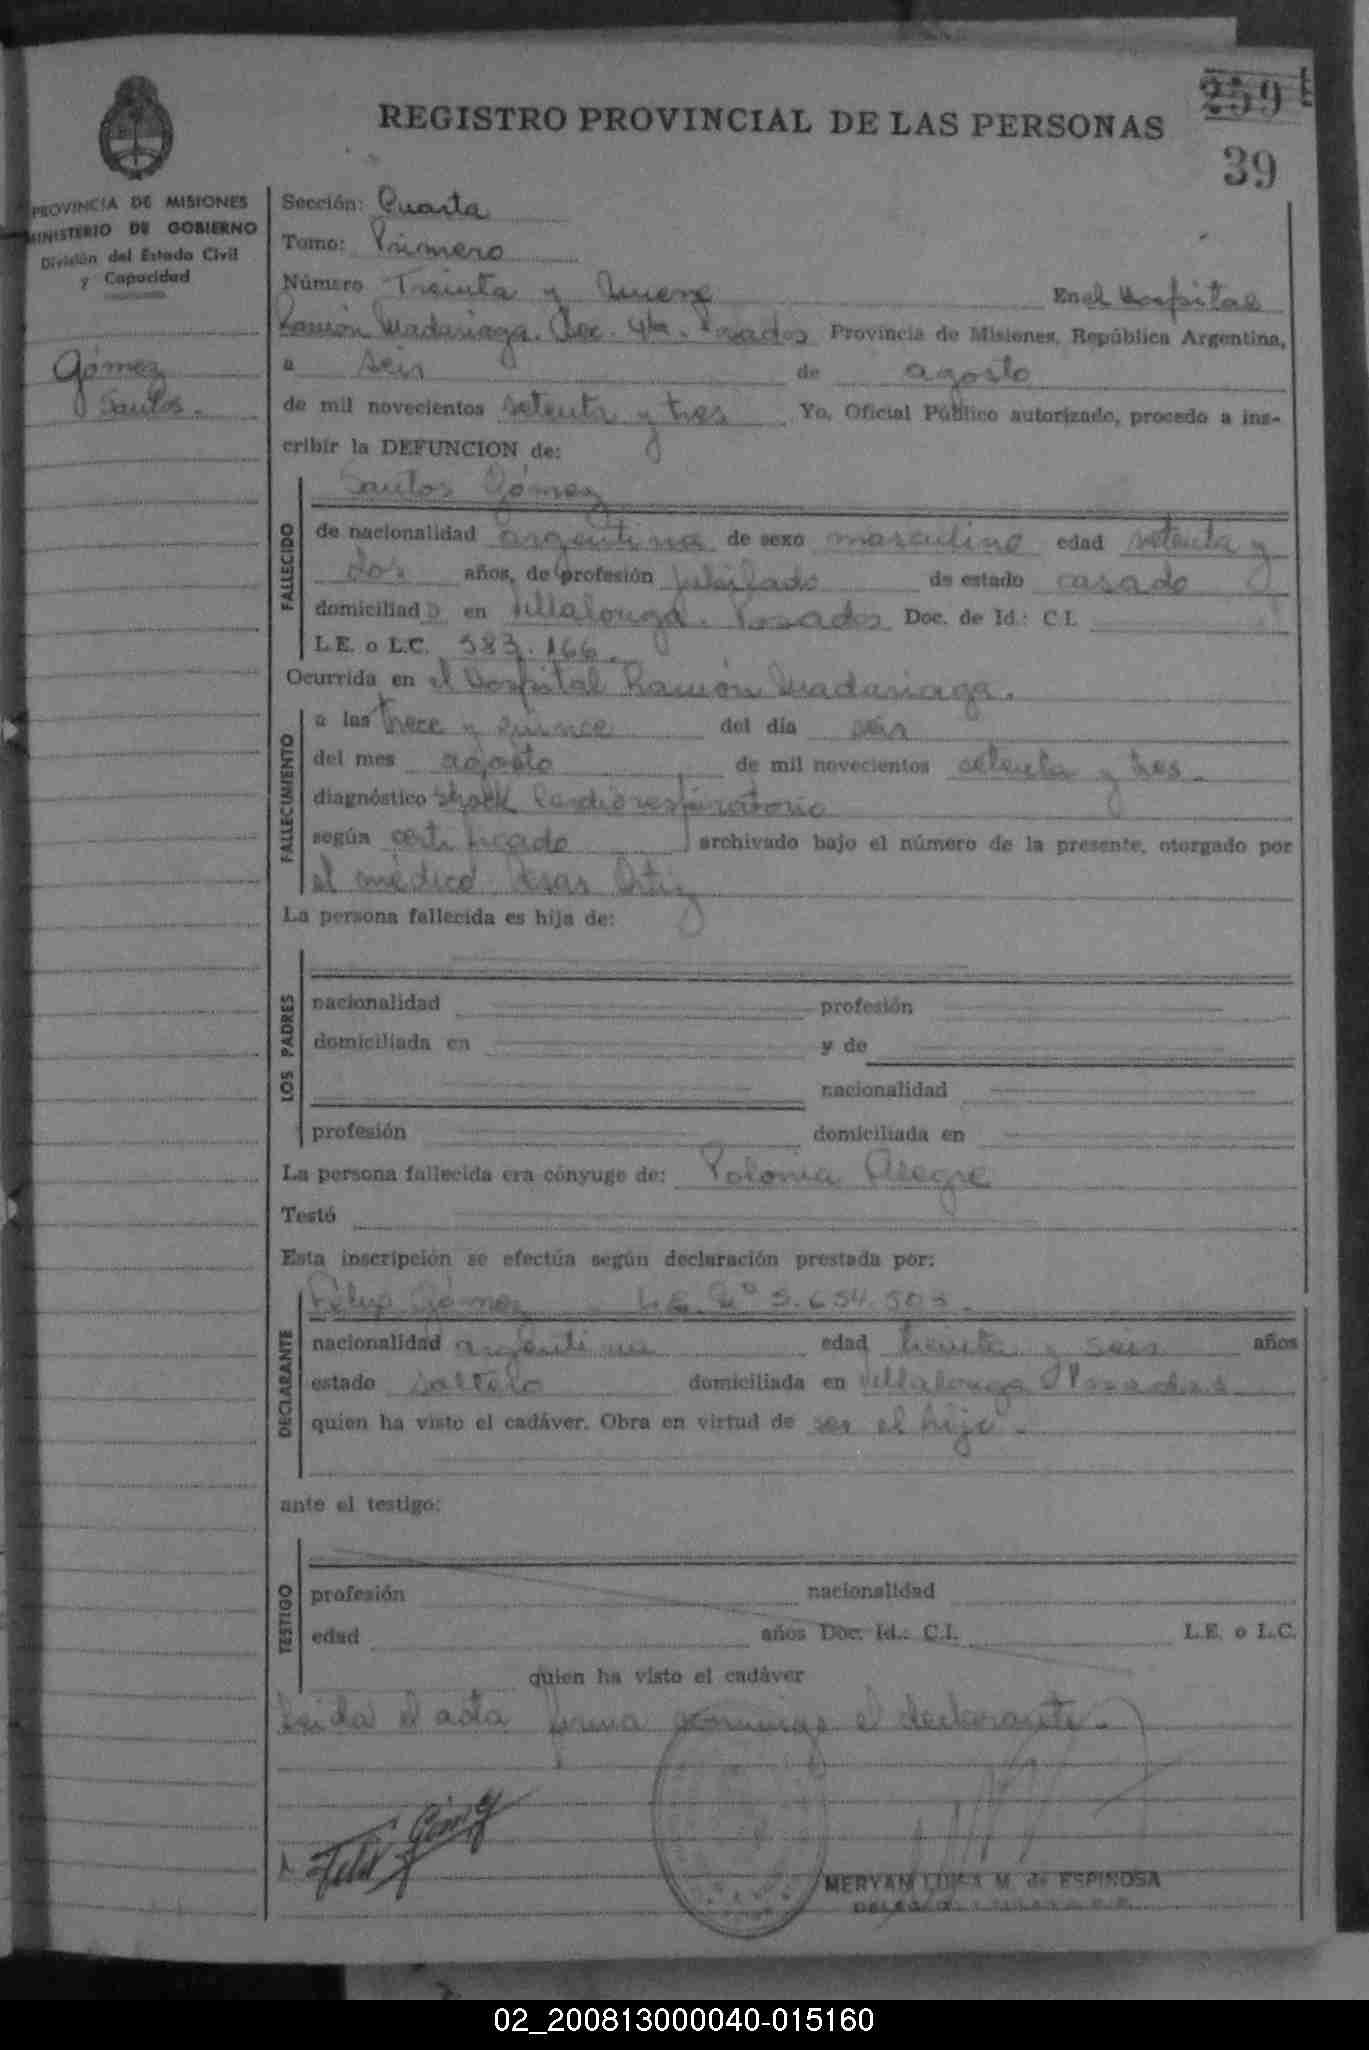 259
REGISTRO PROVINCIAL DE LAS PERSONAS
39
PROVINCIA DE MISIONES
MINISTERIO DE GOBIERNO
División del Estado Civil
y Capacidad
Gómez
Santos.
Sección: Cuarta
Tomo: Primero
Número Treinta y Nueve En el Hospital
Ramón Madariaga. Sec. 4ta. Posadas Provincia de Misiones, República Argentina,
a seis de agosto
de mil novecientos setenta y tres Yo, Oficial Público autorizado, procedo a ins-
cribir la DEFUNCION de:
Santos Gómez
FALLECIDO
de nacionalidad argentina de sexo masculino edad setenta y
dos años, de profesión jubilado de estado casado
domiciliado en Villalonga. Posadas Doc. de Id.: C.I.
L.E. o L.C. 583.166.
Ocurrida en el Hospital Ramón Madariaga.
FALLECIMIENTO
a las trece y quince del día seis
del mes agosto de mil novecientos setenta y tres
diagnóstico shock Cardiorespiratorio
según certificado archivado bajo el número de la presente, otorgado por
el médico Ortiz
La persona fallecida es hija de:
LOS PADRES
nacionalidad profesión
domiciliada en y de
nacionalidad
profesión domiciliada en
La persona fallecida era cónyuge de: Polonia Alegre
Testó
Esta inscripción se efectúa según declaración prestada por:
DECLARANTE
Félix Gómez L.E. Nº 5.654.503.
nacionalidad argentina edad treinta y seis años
estado soltero domiciliada en Villalonga Posadas
quien ha visto el cadáver. Obra en virtud de ser el hijo.
ante el testigo:
TESTIGO
profesión nacionalidad
edad años Doc. Id.: C.I. L.E. o L.C.
quien ha visto el cadáver
Leída el acta firma conmigo el declarante.
Felix Gómez
MERYAN LUISA M. de ESPINOSA
02_200813000040-015160